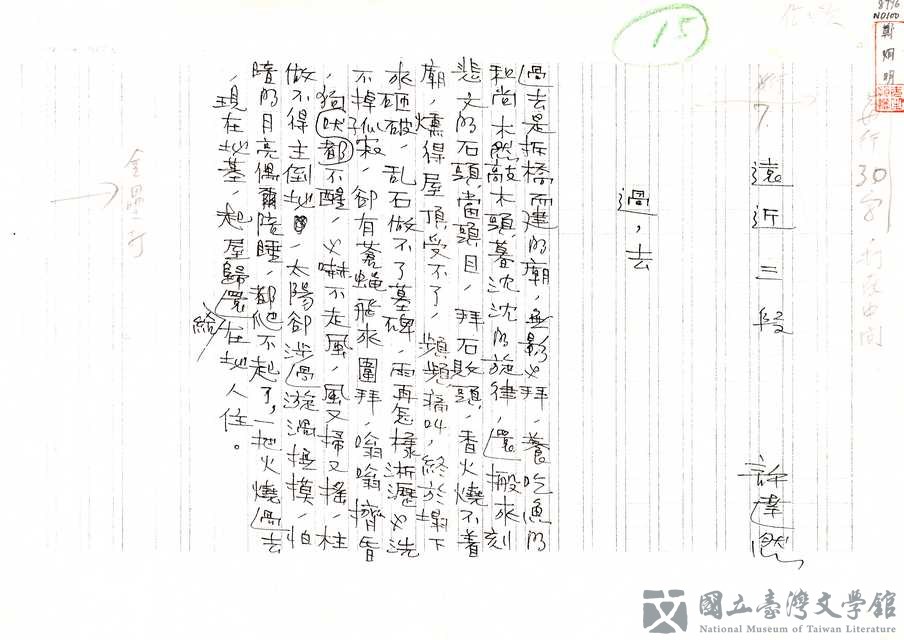 8796
ND100
鄭烱明
15
每行30字
7.
遠近二段
許達然
過，去
過去是拆橋而建的廟，無影也拜，養吃魚的
和尚木然敲木頭，暮沈沈的旋律，還搬來刻
悲文的石頭，當頭目，拜石敗頭，香火燒不着
廟，燻得屋頂受不了，頻頻痛叫，終於塌下
來砸破，乱石做不了墓碑，雨再怎樣淅瀝也洗
不掉似寂，卻有蒼蝇飛來圍拜，嗡嗡擠昏
，狗子吠都不醒，也嚇不走風，風又掃又搖，柱
做不得主倒地，太陽卻涉過漩渦撫摸，怕
暗的月亮偶爾陪睡，都爬不起了，一把火燒過去
，現在地基，起屋歸還給在地人住。
國立臺灣文學館
National Museum of Taiwan Literature